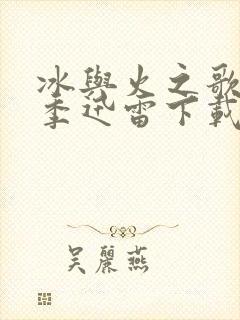 冰與火之歌
季迅雷下載
吴麗燕